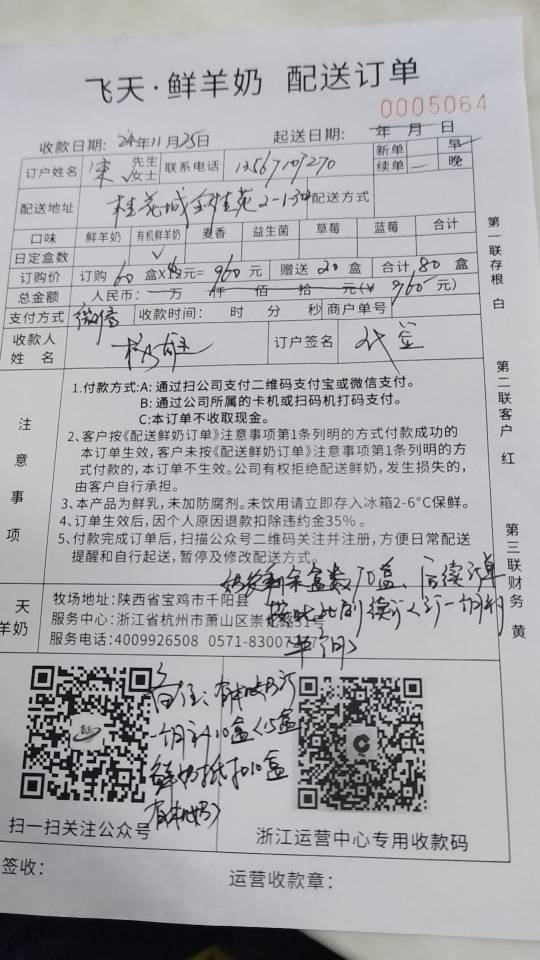 飞天·鲜羊奶 配送订单
0005064
收款日期: 24年11月25日 起送日期: 年 月 日
订户姓名 先生 女士 联系电话 13567107270 新单 早 续单 晚
配送地址 桂花城 2-1 配送方式
口味 鲜羊奶 有机鲜羊奶 麦香 益生菌 草莓 蓝莓 合计
日定盒数 ✓
订购价 订购 60 盒X 元= 960 元 赠送 20 盒 合计 80 盒
总金额 人民币: 万 仟 佰 拾 元(¥ 960 元)
支付方式 微信 收款时间: 时 分 秒 商户单号
收款人姓名 订户签名 代签
注意事项
1.付款方式:A: 通过扫公司支付二维码支付宝或微信支付。
B: 通过公司所属的卡机或扫码机打码支付。
C:本订单不收取现金。
2、客户按《配送鲜奶订单》注意事项第1条列明的方式付款成功的
本订单生效,客户未按《配送鲜奶订单》注意事项第1条列明的方
式付款的,本订单不生效。公司有权拒绝配送鲜奶,发生损失的,
由客户自行承担。
3、本产品为鲜乳,未加防腐剂。未饮用请立即存入冰箱2-6°C保鲜。
4、订单生效后,因个人原因退款扣除违约金35%。
5、付款完成订单后,扫描公众号二维码关注并注册,方便日常配送
提醒和自行起送,暂停及修改配送方式。
剩余盒数70盒、后续订单
按此比例续订
天
羊奶
牧场地址:陕西省宝鸡市千阳县
服务中心:浙江省杭州市萧山区崇化路31号
服务电话:4009926508 0571-83007
备注:有机奶订
一月 10盒<15盒
鲜奶抵扣10盒
有机奶>
扫一扫关注公众号
浙江运营中心专用收款码
签收:
运营收款章:
第一联存根 白
第二联客户 红
第三联财务 黄